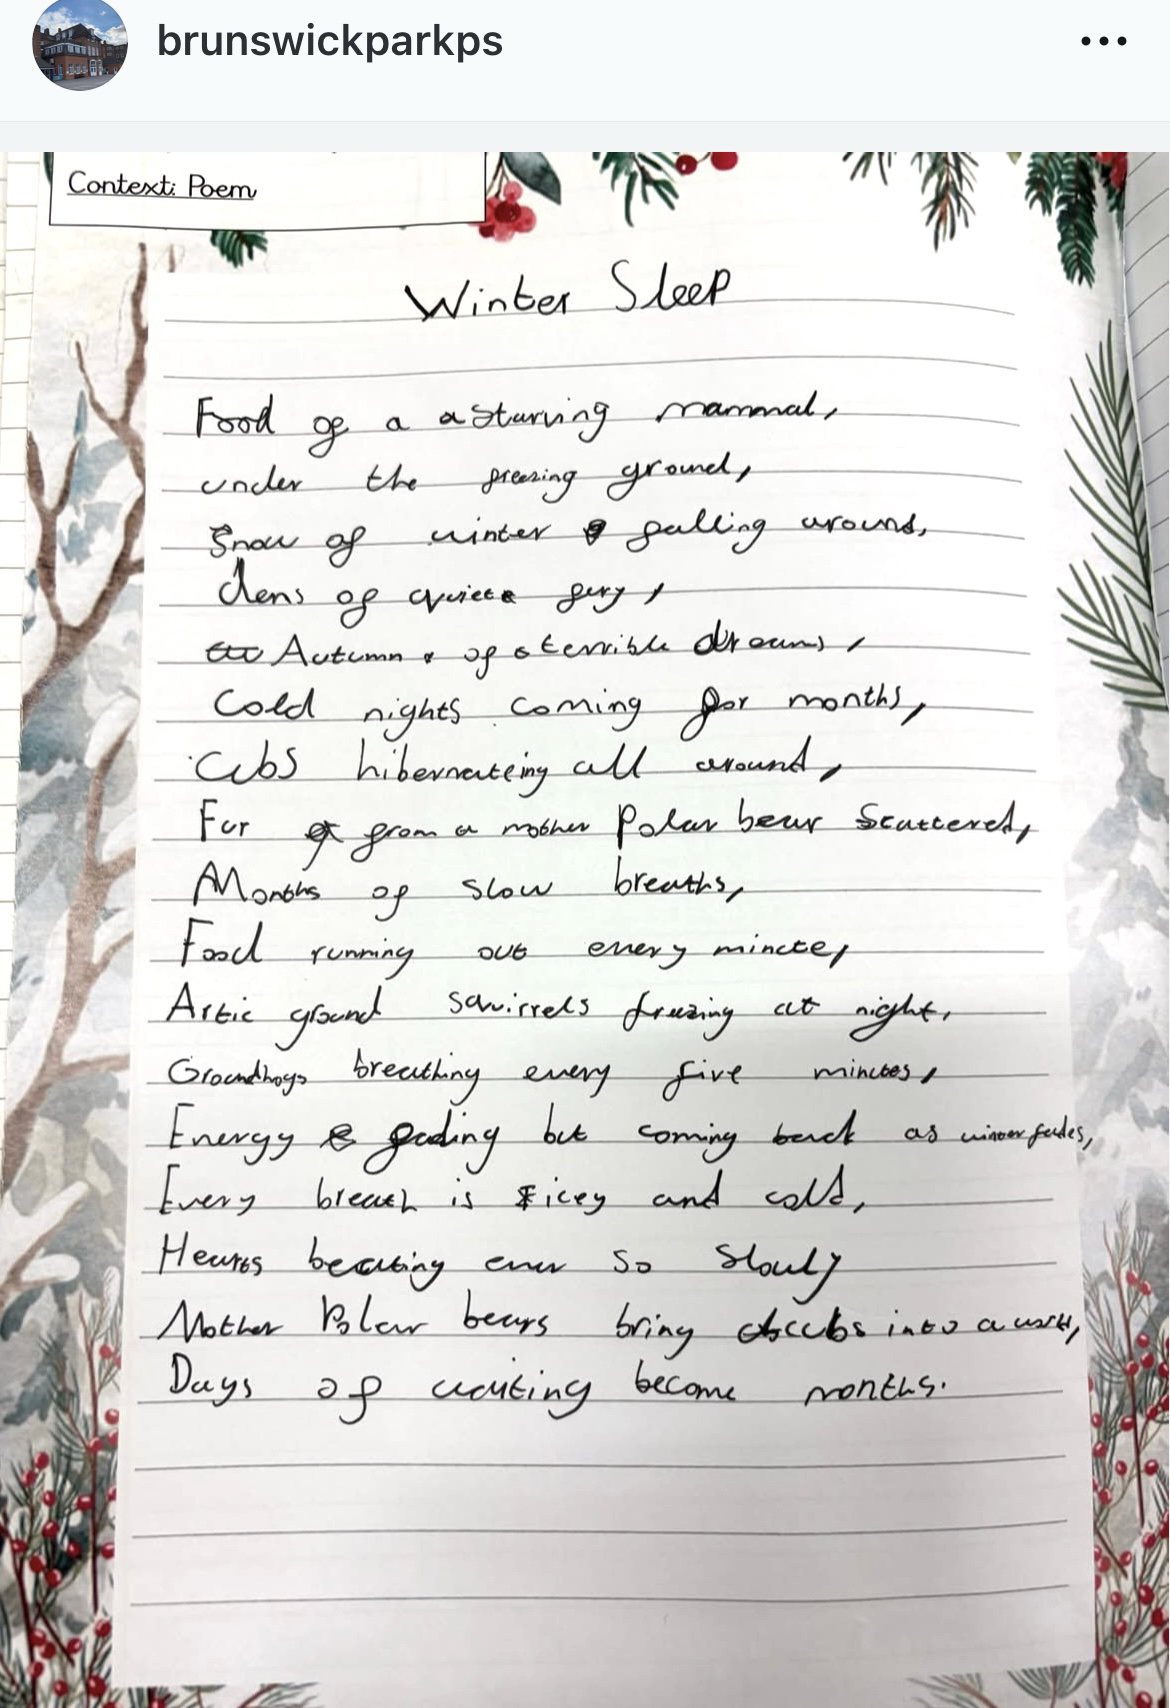 brunswickparkps
Context: Poem
Winter Sleep
Food of a a starving mammal,
under the freezing ground,
Snow of winter falling around,
dens of quiet fury,
Autumn of terrible dreams,
Cold nights coming for months,
Cubs hibernateing all around,
Fur from a mother Polar bear scattered,
Months of slow breaths,
Food running out every minute,
Artic ground squirrels freezing at night,
Groundhogs breathing every five minutes,
Energy fading but coming back as winter fades,
Every breath is icey and cold,
Hearts beating ever so slowly
Mother Polar bears bring cubs into a world,
Days of waiting become months.